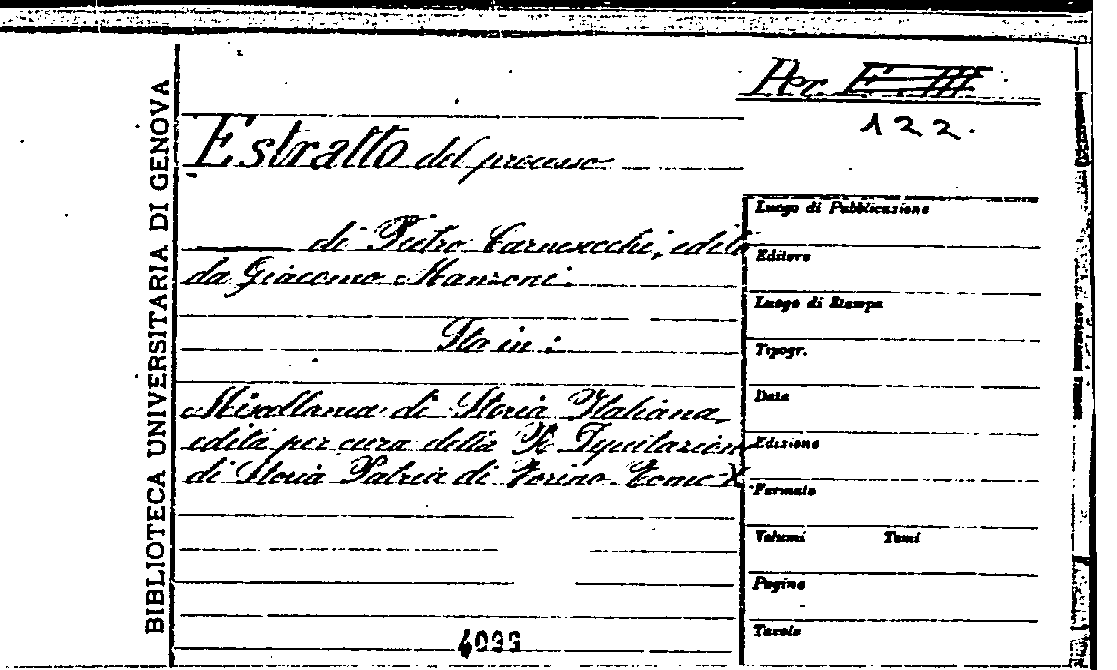 BIBLIOTECA UNIVERSITARIA DI GENOVA
Per E. III
122.
Estratto del processo
di Pietro Carnesecchi, edito
da Giacomo Manzoni.
Sta in:
Miscellanea di Storia Italiana,
edita per cura della R. Deputazione
di Storia Patria di Torino Tomo X.
Luogo di Pubblicazione
Editore
Luogo di Stampa
Tipogr.
Data
Edizione
Formato
Volumi Tomi
Pagine
Tavole